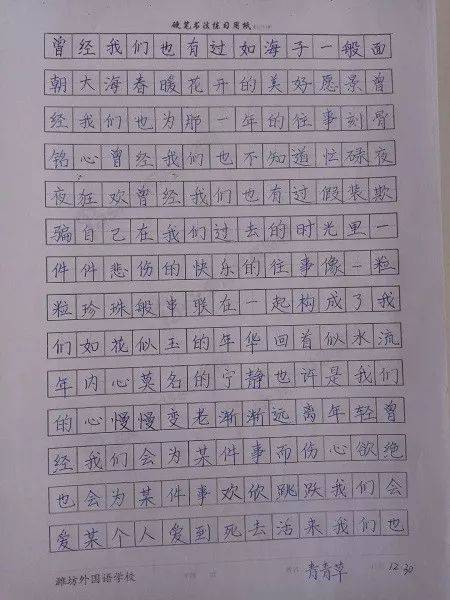 硬笔书法练习用纸
曾经我们也有过如海子一般面
朝大海春暖花开的美好愿景曾
经我们也为那一年的往事刻骨
铭心曾经我们也不知道忙碌夜
夜狂欢曾经我们也有过假装欺
骗自己在我们过去的时光里一
件件悲伤的快乐的往事像一粒
粒珍珠般串联在一起构成了我
们如花似玉的年华回首似水流
年内心莫名的宁静也许是我们
的心慢慢变老渐渐远离年轻曾
经我们会为某件事而伤心欲绝
也会为某件事欢侬跳跃我们会
爱某个人爱到死去活来我们也
潍坊外国语学校 青青草 12.30